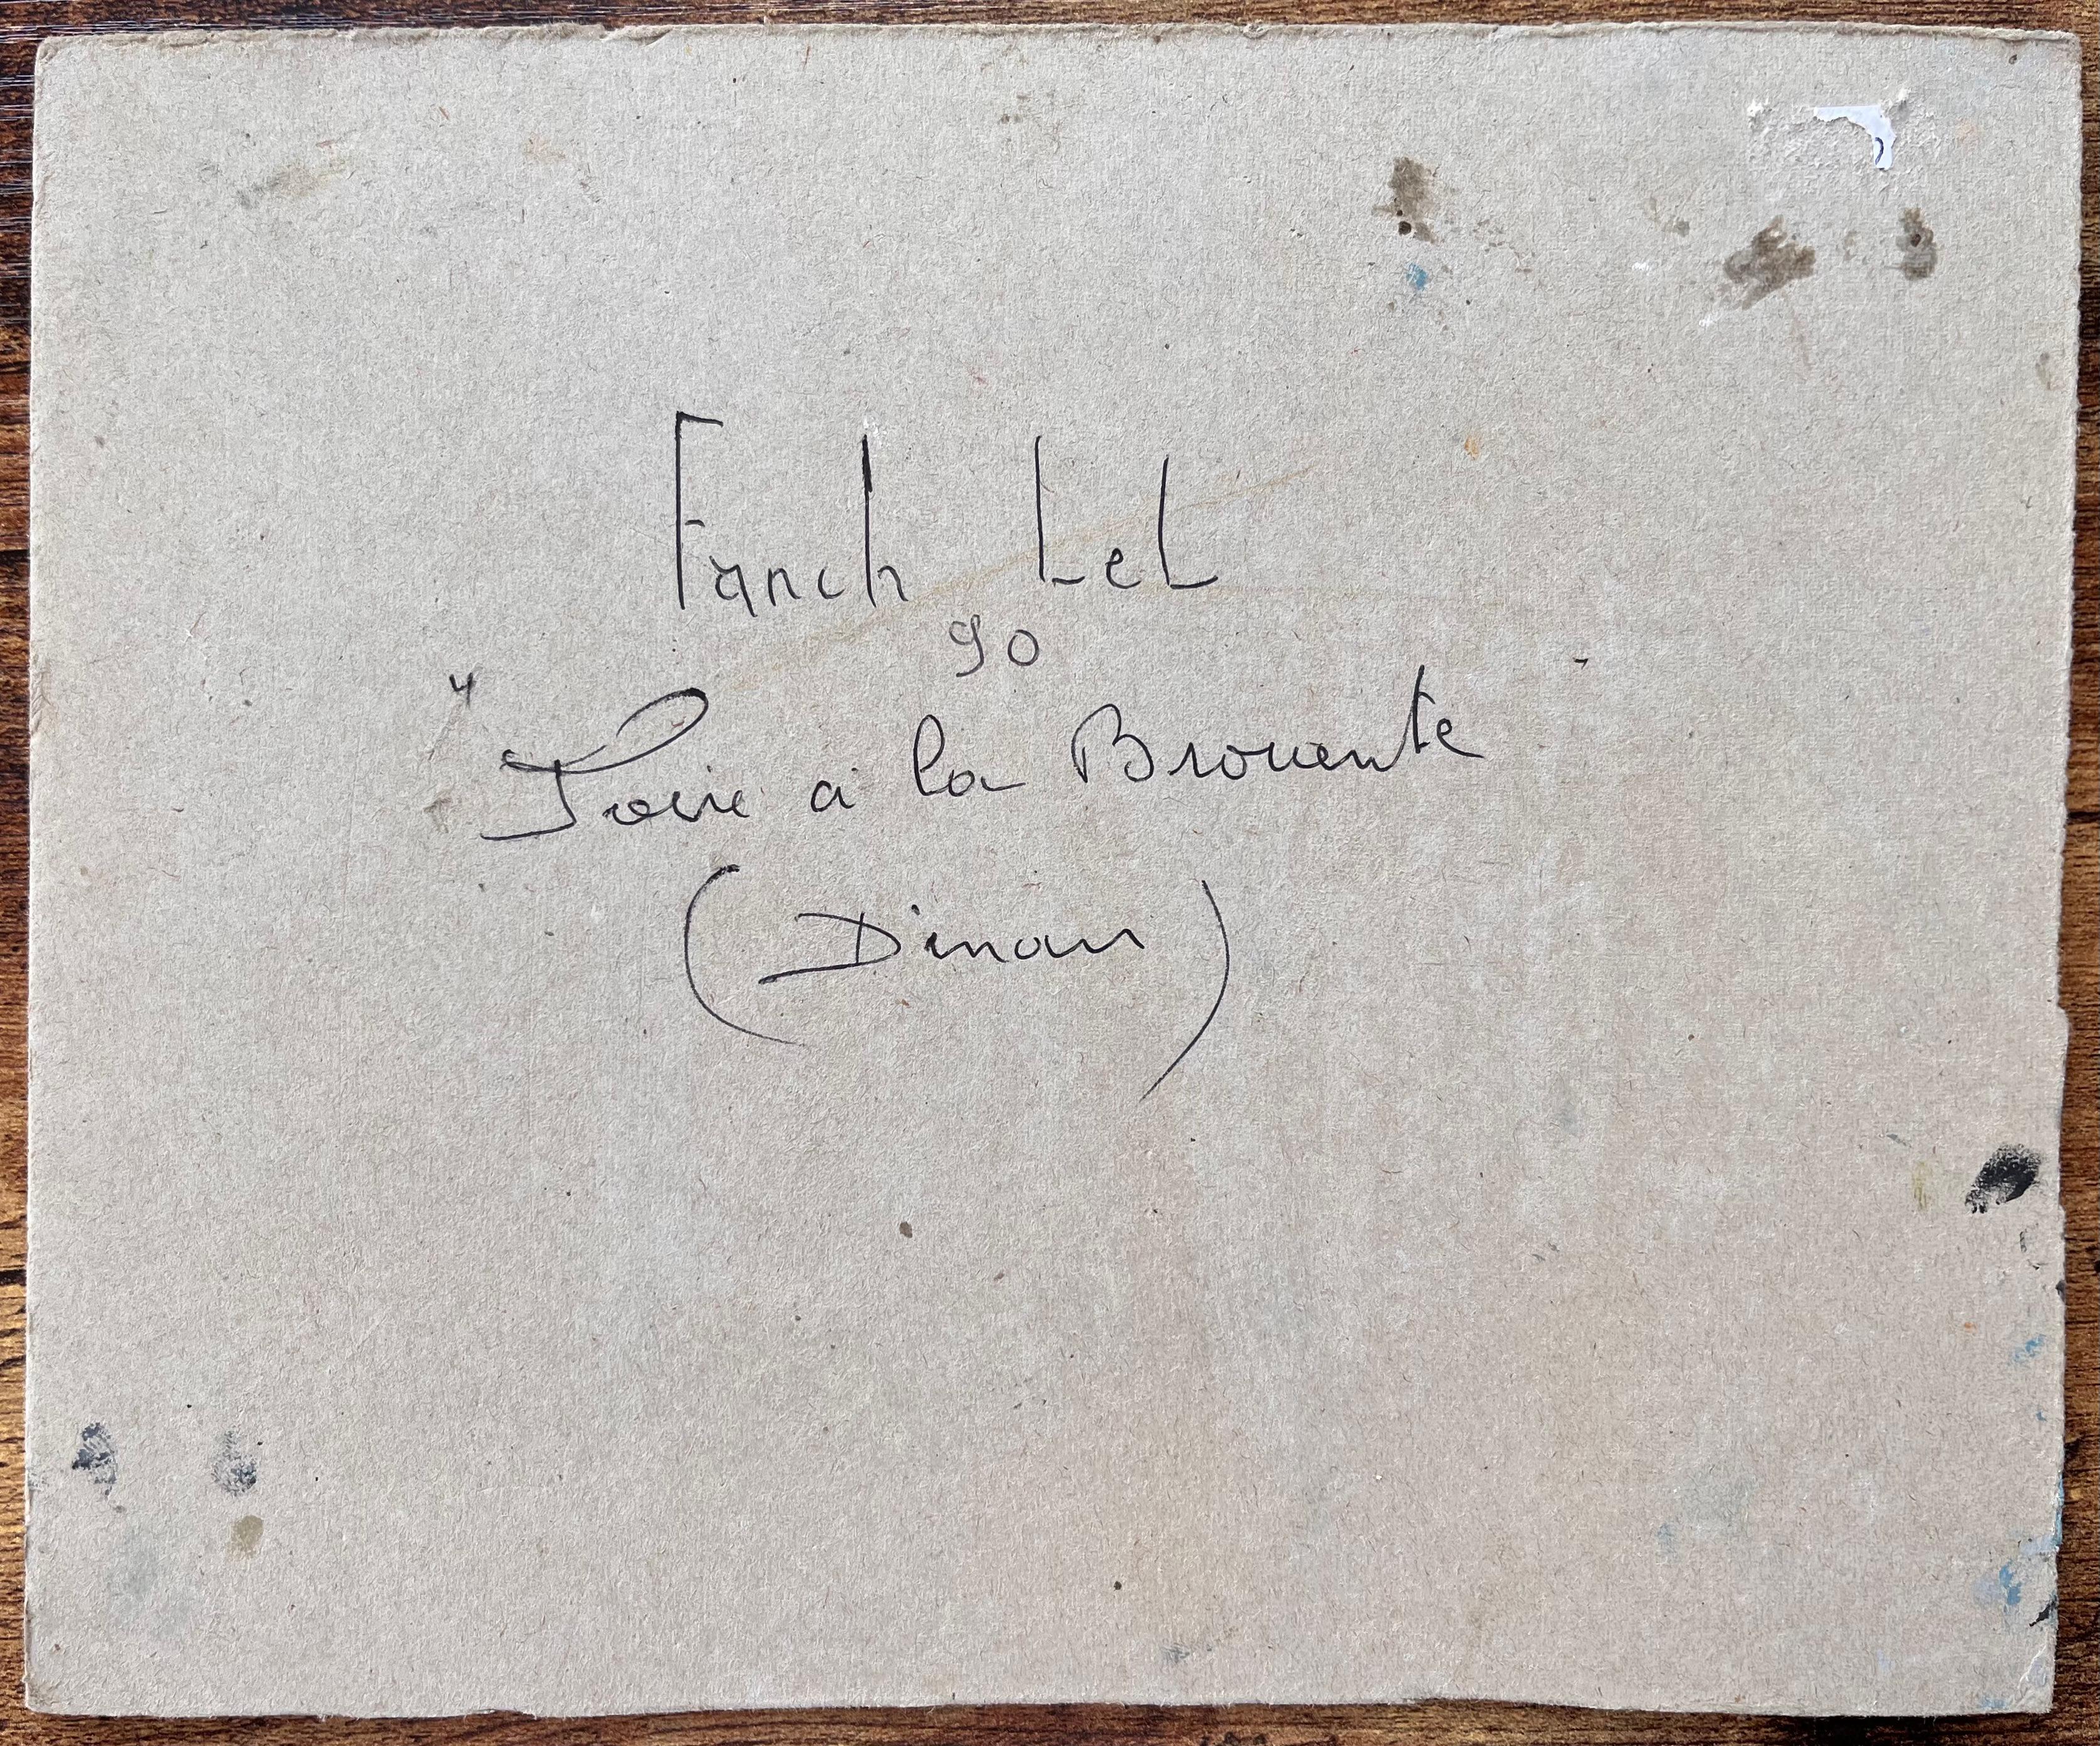 Fanch Lel
90
"Foire a la Brocante"
(Dinan)